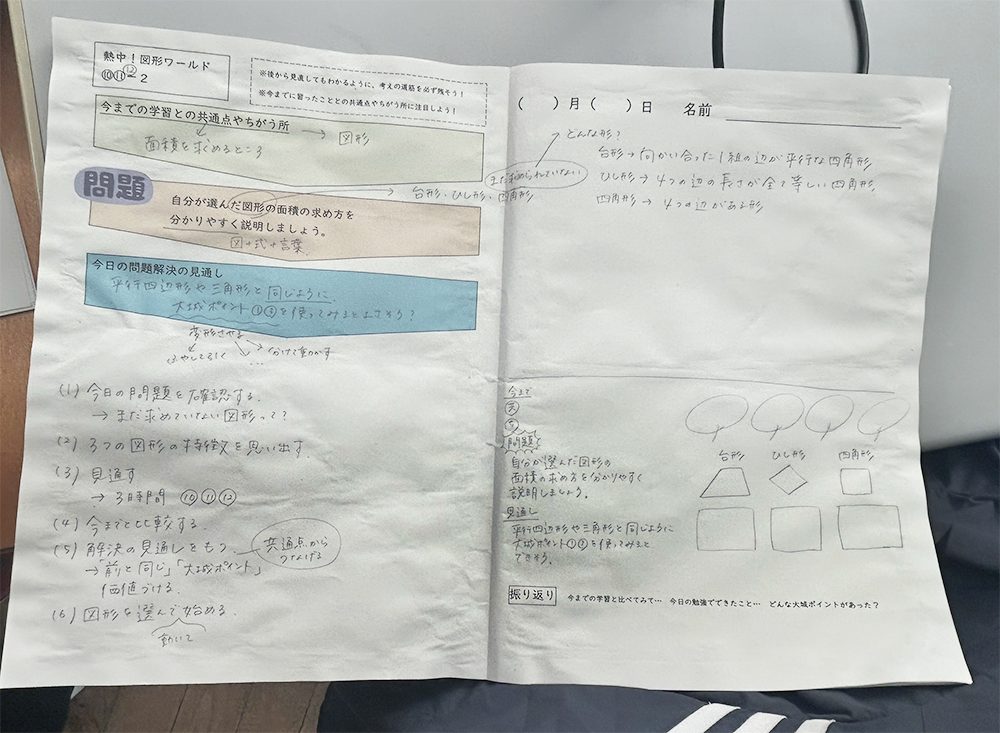 熱中！図形ワールド
⑩⑪⑫－２
※後から見直してもわかるように、考えの道筋を必ず残そう！
※今までに習ったこととの共通点やちがう所に注目しよう！
今までの学習との共通点やちがう所
面積を求めるところ
図形
問題
自分が選んだ図形の面積の求め方を
分かりやすく説明しましょう。
図＋式＋言葉
台形、ひし形、四角形
まだ求められていない
今日の問題解決の見通し
平行四辺形や三角形と同じように、
大城ポイント①③を使ってみるとよさそう？
変形させる
ふやしてひく
…
分けて動かす
(1) 今日の問題を確認する。
→ まだ求めていない図形って？
(2) 3つの図形の特徴を思い出す
(3) 見通す
→ 3時間 ⑩⑪⑫
(4) 今までと比較する。
(5) 解決の見通しをもつ。
共通点から
つなげる
→「前と同じ」「大城ポイント」
価値づける。
(6) 図形を選んで始める。
動いて
（　）月（　）日　名前
どんな形？
台形→向かい合った1組の辺が平行な四角形
ひし形→4つの辺の長さが全て等しい四角形。
四角形→4つの辺がある形
今まで
問題
自分が選んだ図形の
面積の求め方を分かりやすく
説明しましょう。
見通し
平行四辺形や三角形と同じように
大城ポイント①③を使ってみると
できそう。
台形　ひし形　四角形
振り返り
今までの学習と比べてみて…　今日の勉強でできたこと…　どんな大城ポイントがあった？